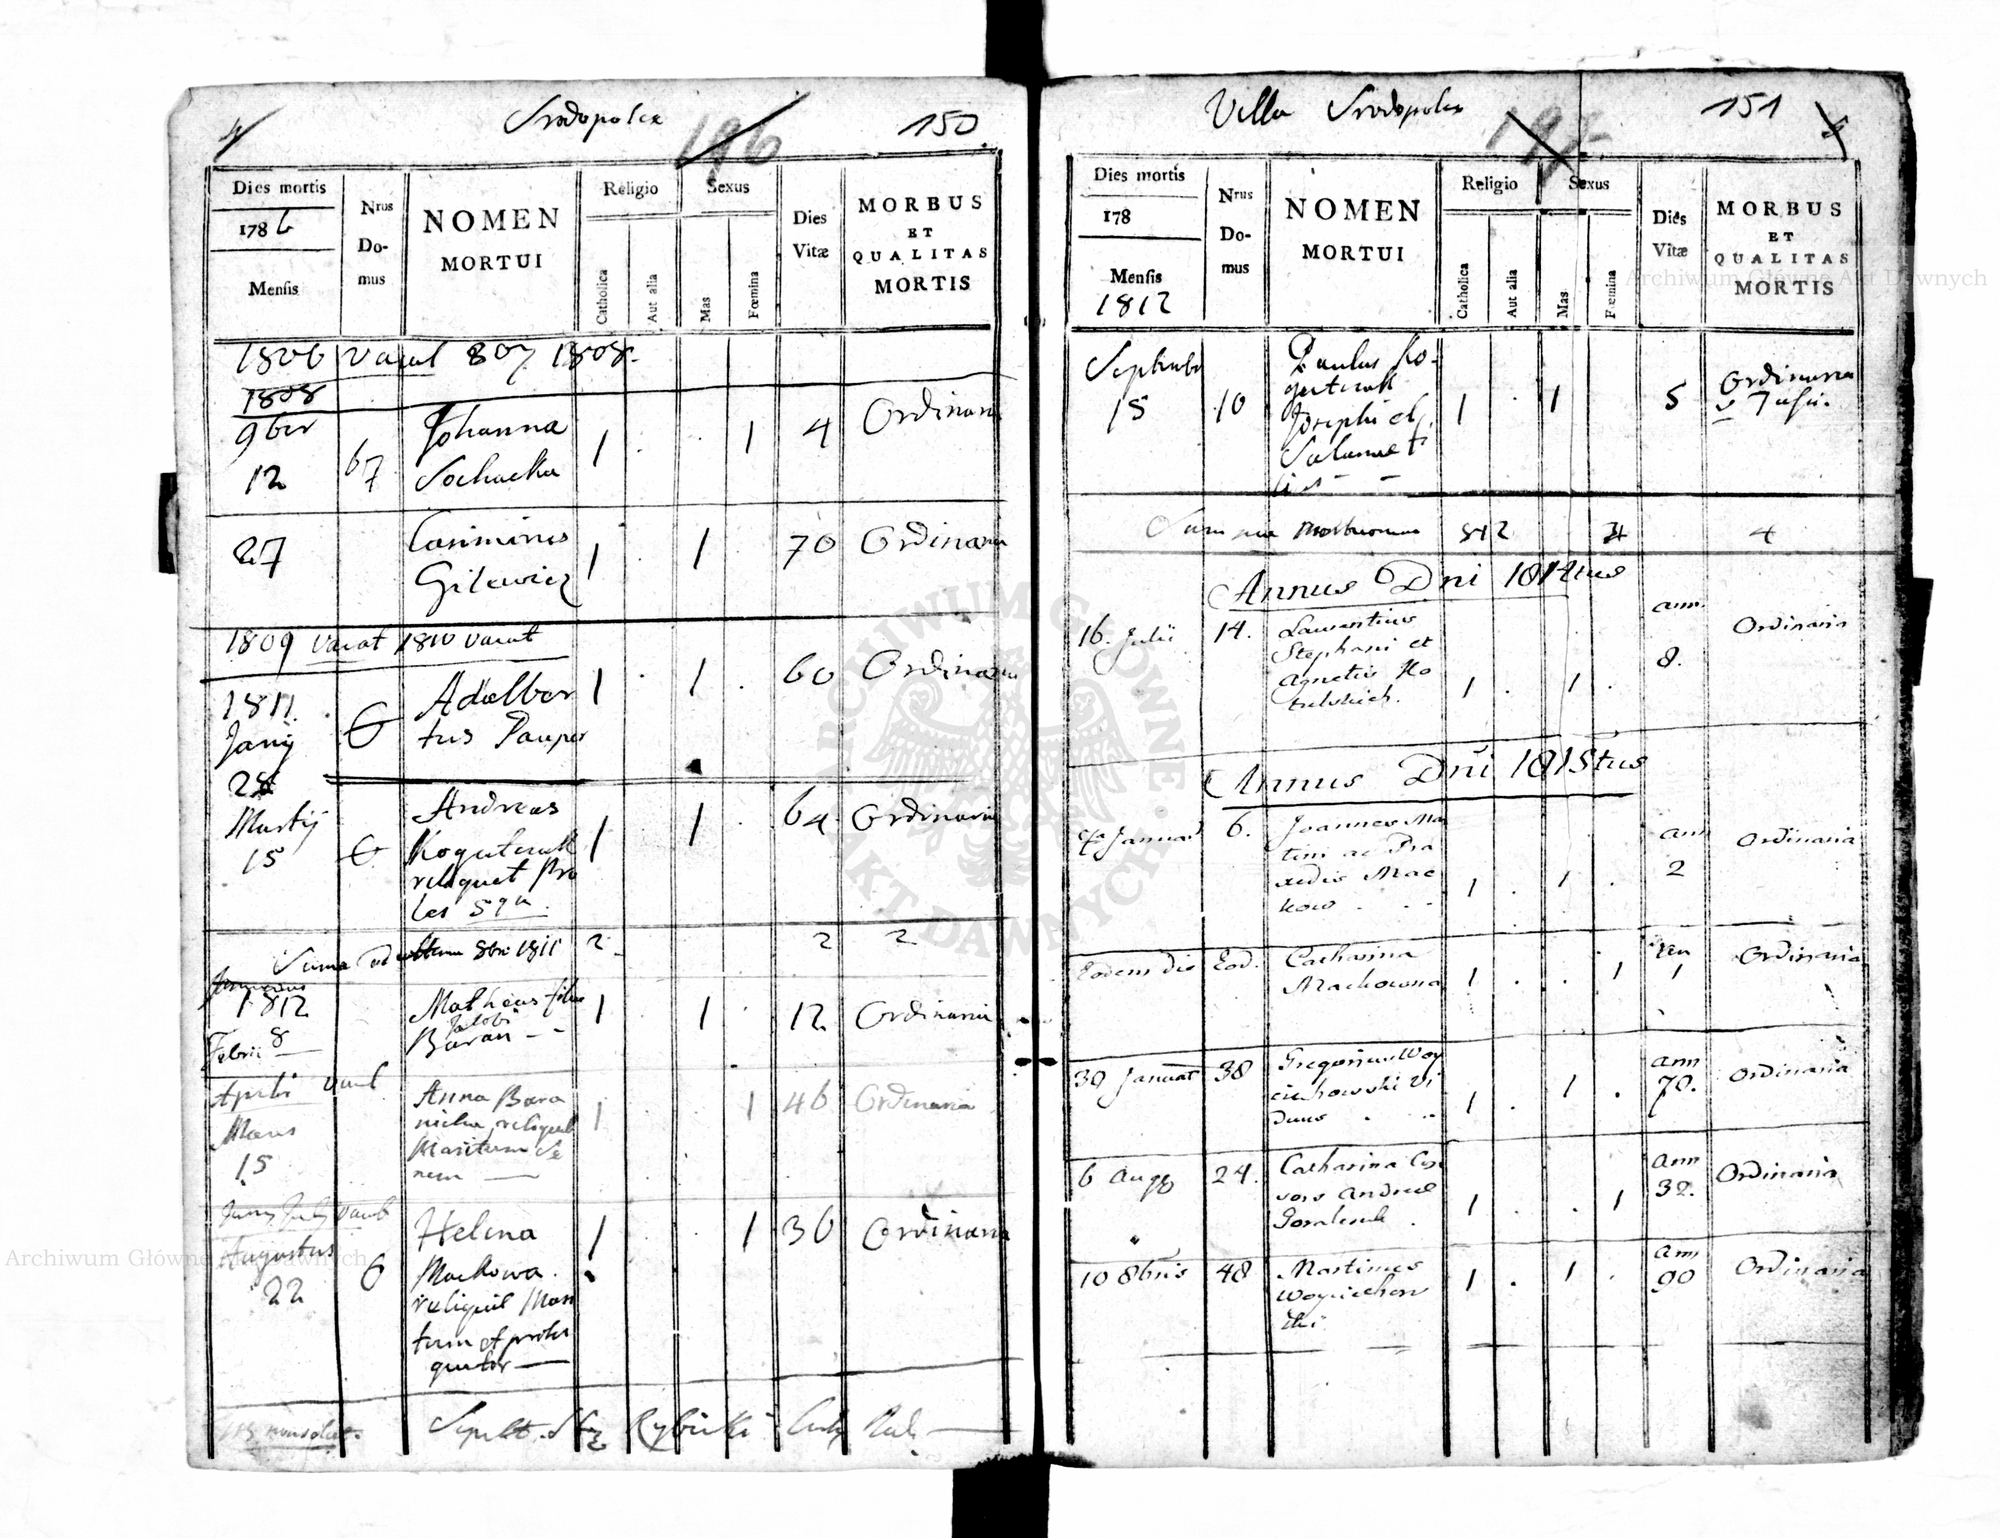 4
Srodopolce
196
150
Dies mortis
1786
Mensis
Nrus
Do-
mus
NOMEN
MORTUI
Religio
Catholica
Aut alia
Sexus
Mas
Fœmina
Dies
Vitæ
MORBUS
ET
QUALITAS
MORTIS
1806 vacat 807 1808
1808
9ber
12
67
Johanna
Sochacka
1 . . 1 4 Ordinaria
27
Casimirus
Gilewicz
1 . 1 . 70 Ordinaria
1809 vacat 1810 vacat
1811
Janij
28
6
Adalber
tus Pauper
1 . 1 . 60 Ordinaria
Martij
15
6
Andreas
Koguteruk
reliquet Pro
les
1 . 1 . 64 Ordinaria
Suma ad ultimam 8bri 1811 2 2 2
Januarius
1812
Febrii 8
Matheus filius
Jacobi
Baran
1 . 1 . 12 Ordinaria
Aprilis vacat
Maius
15
Anna Bara
nicha reliquit
Maritum Se
nem
1 . . 1 46 Ordinaria
Juny July vacat
Augustus
22
6
Helena
Mackowa
reliquit Mari
tum et proles
quatuor
1 . . 1 36 Ordinaria
Sepult. Rybicki
Villa Srodopolce
197
151
5
Dies mortis
178
Mensis
1812
Nrus
Do-
mus
NOMEN
MORTUI
Religio
Catholica
Aut alia
Sexus
Mas
Fœmina
Dies
Vitæ
MORBUS
ET
QUALITAS
MORTIS
Septembr
15
10
Paulus Ko-
guteruk
Josephi et
Salomee fi
lius
1 . 1 5 Ordinaria
Summa Mortuorum 4
Annus Dni 1814tus
16. Julii
14.
Laurentius
Stephani et
Agnetis Ko
1 . 1 .
ann
8.
Ordinaria
Annus Dni 1815tus
Januar
6.
Joannes Mar
tini ac Pra
xedis Mac
kow
1 . 1 .
ann
2
Ordinaria
Eodem die
Eod.
Catharina
Mackowna
1 . . 1
1
Ordinaria
30 Januar
38
Gregorius Woy
ciechowski Vi
duus
1 . 1 .
ann
70.
Ordinaria
6 Augs
24.
Catharina Con
sors Andreæ
1 . . 1
ann
32.
Ordinaria
10 8bris
48
Martinus
Woyciechow
ski
1 . 1 .
ann
90
Ordinaria
ARCHIWUM GŁÓWNE AKT DAWNYCH
Archiwum Główne Akt Dawnych
Archiwum Główne Akt Dawnych